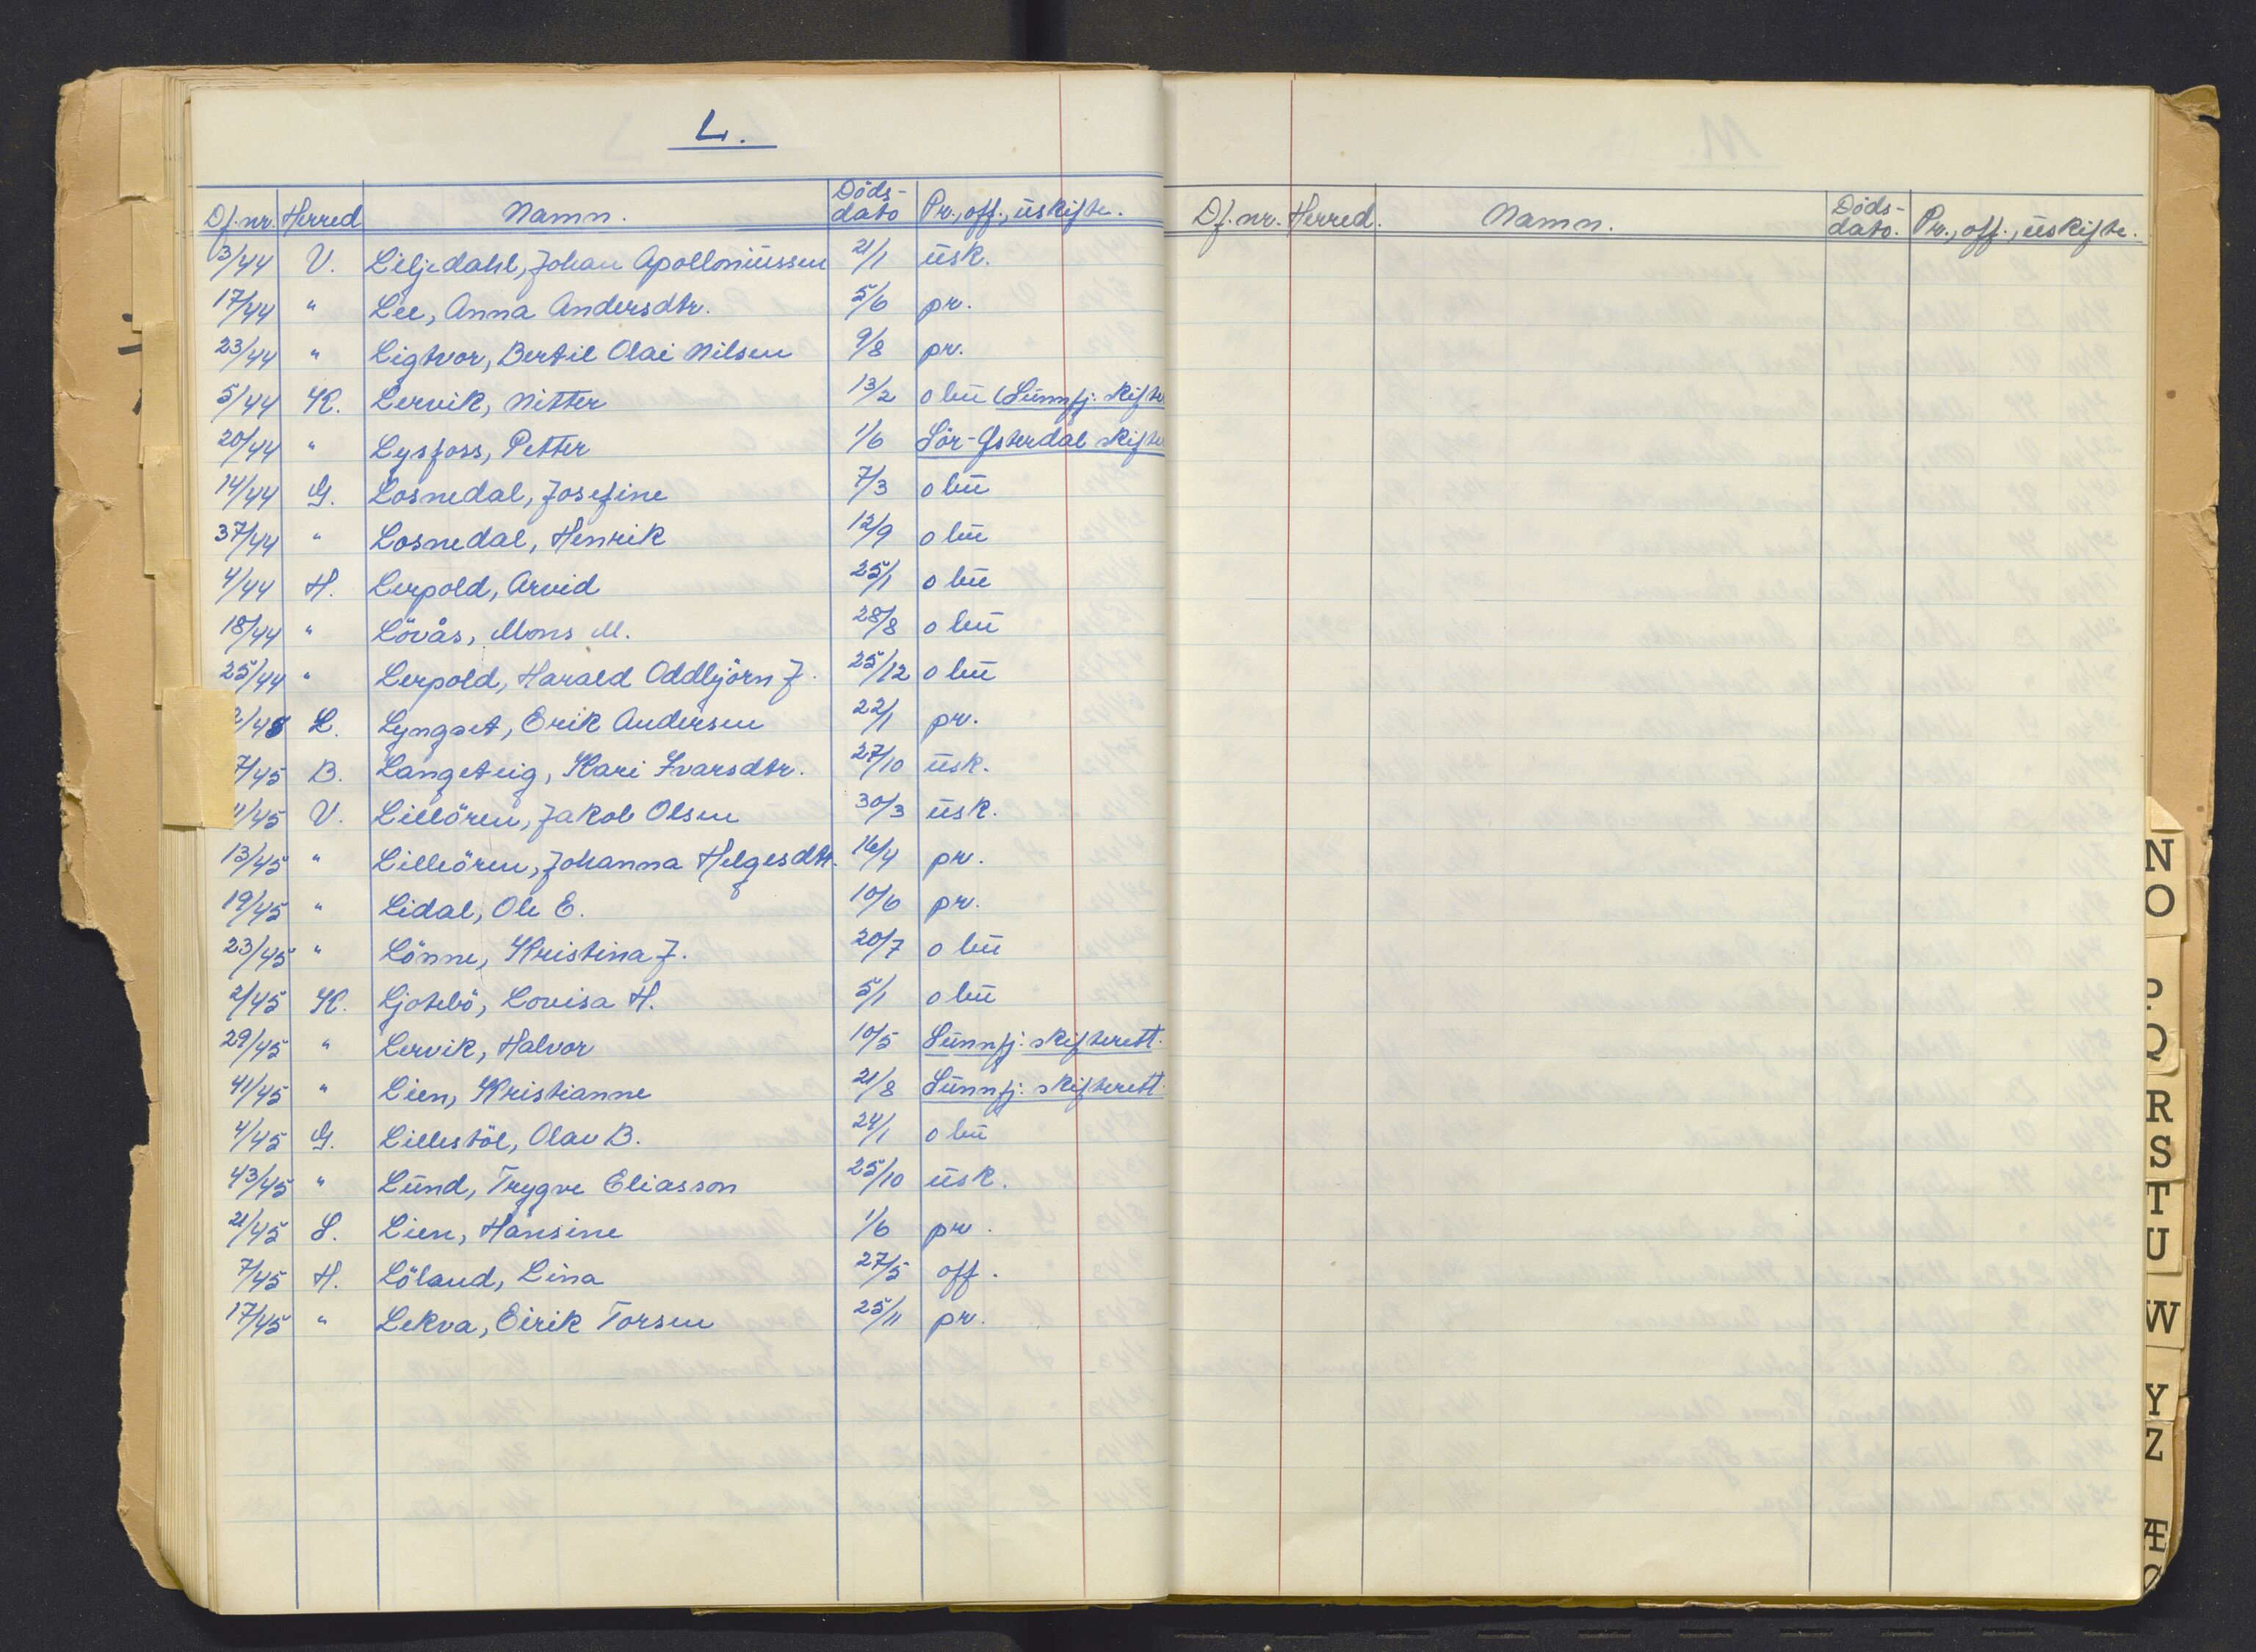 L.
Df.nr. Herred Namn. Döds-dato Pr., off., üskifte.
3/44 V. Liljedahl, Johan Apolloniüssen 21/1 üsk.
17/44 " Lee, Anna Andersdtr. 5/6 pr.
23/44 " Ligtvor, Bertil Olai Nilsen 9/8 pr.
5/44 K. Lervik, Nitter 13/2 o bü (Sünnfj. skifte
20/44 " Lysfoss, Petter 1/6 Sör-Østerdal skifte
14/44 G. Losnedal, Josefine 7/3 o bü
37/44 " Losnedal, Henrik 12/9 o bü
4/44 H. Lerpold, Arvid 25/1 o bü
18/44 " Lövås, Mons M. 28/8 o bü
25/44 " Lerpold, Harald Oddbjörn J. 25/12 o bü
2/45 L. Lyngset, Erik Andersen 22/1 pr.
7/45 B. Langeteig, Kari Ivarsdtr. 27/10 üsk.
11/45 V. Lillören, Jakob Olsen 30/3 üsk.
13/45 " Lilleören, Johanna Helgesdtr. 16/4 pr.
19/45 " Lidal, Ole E. 10/6 pr.
23/45 " Lönne, Kristina J. 20/7 o bü
2/45 K. Ljotebö, Lovisa H. 5/1 o bü
29/45 " Lervik, Halvor 10/5 Sünnfj. skifterett.
41/45 " Lien, Kristianne 21/8 Sünnfj. skifterett.
4/45 G. Lillestöl, Olav B. 24/1 o bü
43/45 " Lünd, Trygve Eliasson 25/10 üsk.
21/45 S. Lien, Hansine 1/6 pr.
7/45 H. Löland, Lina 27/5 off.
17/45 " Lekva, Eirik Torsen 25/11 pr.
Df.nr. Herred. Namn. Döds-dato. Pr., off., üskifte.
N
O
P
Q
R
S
T
U
W
Y
Z
Æ